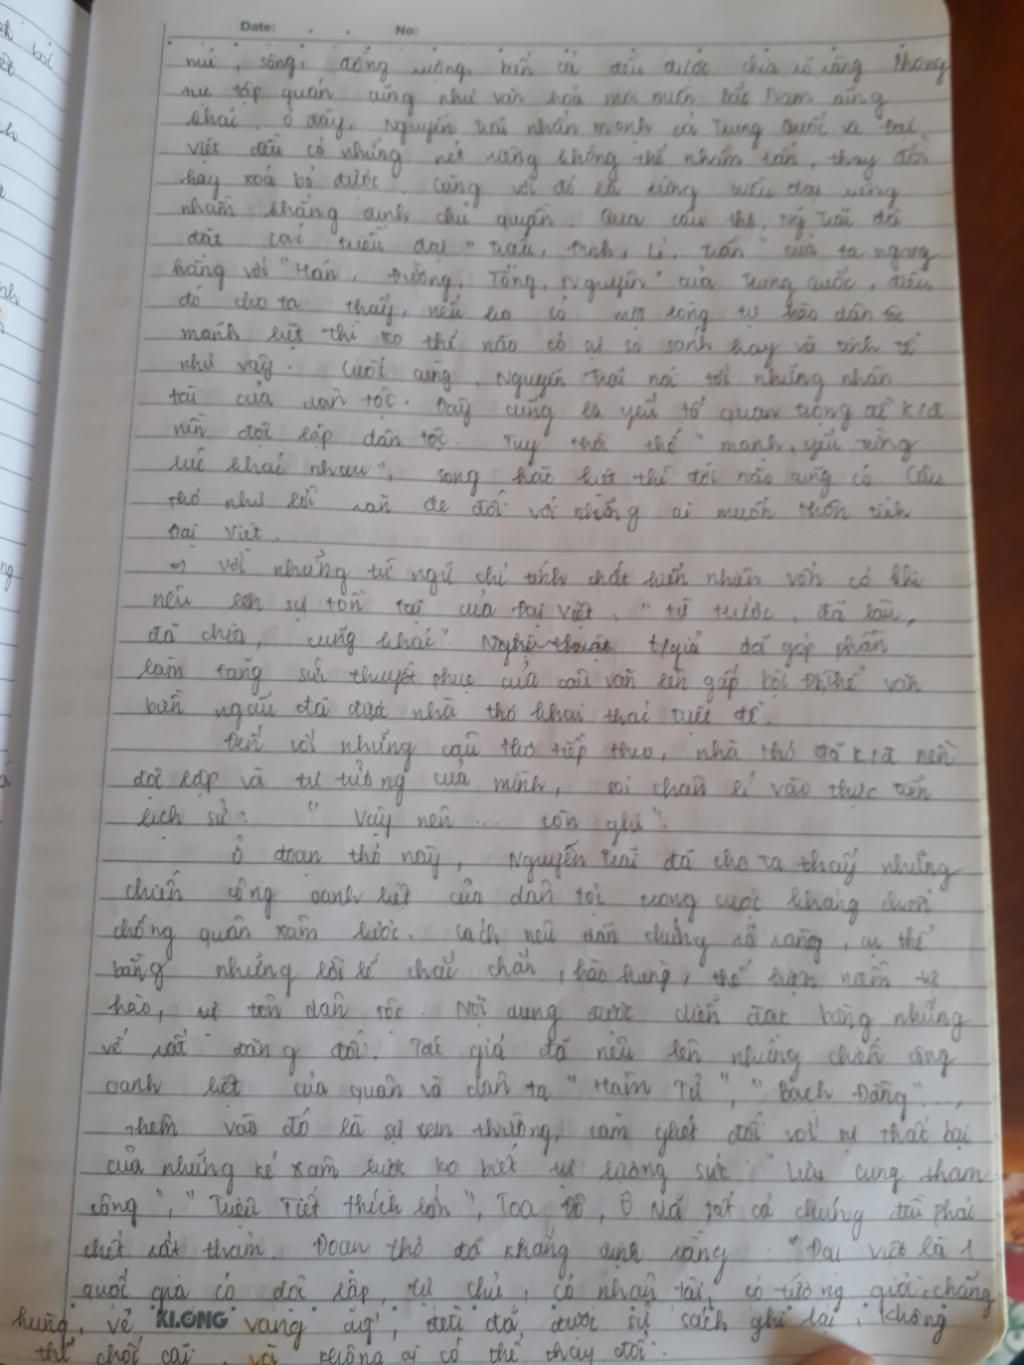 Date: . . No:
núi, sông, đồng ruộng, biển cả đều được chia rõ ràng Phong
tục tập quán cũng như văn hoá mỗi miền Bắc Nam cũng
khác. Ở đây, Nguyễn Trãi nhấn mạnh cả Trung Quốc và Đại
Việt đều có những nét riêng không thể nhầm lẫn, thay đổi
hay xoá bỏ được. Cùng với đó là từng triều đại riêng
nhằm khẳng định chủ quyền. Qua câu thơ, Ng Trãi đã
đặt các triều đại "Triệu, Đinh, Lí, Trần" của ta ngang
hàng với "Hán, Đường, Tống, Nguyên" của Trung Quốc, điều
đó cho ta thấy, nếu ko có một lòng tự hào dân tộc
mãnh liệt thì ko thể nào có sự so sánh hay và tinh tế
như vậy. Cuối cùng, Nguyễn Trãi nói tới những nhân
tài của dân tộc. Đây cũng là yếu tố quan trọng để K/đ
nền độc lập dân tộc. Tuy thời thế "mạnh, yếu từng
lúc khác nhau", song hào kiệt thì đời nào cũng có. Câu
thơ như lời răn đe đối với những ai muốn thôn tính
Đại Việt.
=> Với những từ ngữ chỉ tính chất hiển nhiên vốn có khi
nêu lên sự tồn tại của Đại Việt. "từ trước, đã lâu,
đã chia, cũng khác". t/giả đã góp phần
làm tăng sức thuyết phục của câu văn lên gấp bội văn
biền ngẫu đã được nhà thơ khai thác triệt để.
Đến với những câu thơ tiếp theo, nhà thơ đã k/đ nền
độc lập và tư tưởng của mình, soi chân lí vào thực tiễn
lịch sử: "Vậy nên ... còn ghi".
Ở đoạn thơ này, Nguyễn Trãi đã cho ta thấy những
chiến công oanh liệt của dân tộc trong cuộc kháng chiến
chống quân xâm lược. Cách nêu dẫn chứng rõ ràng, cụ thể
bằng những lời lẽ chắc chắn, hào hùng, thể hiện niềm tự
hào, tự tôn dân tộc. Nội dung được diễn đạt bằng những
vế rất đăng đối. Tác giả đã nêu lên những chiến công
oanh liệt của quân và dân ta "Hàm Tử", "Bạch Đằng"...,
thêm vào đó là sự xem thường, căm ghét đối với sự thất bại
của những kẻ xâm lược ko biết tự lượng sức: "Lưu Cung tham
công", "Triệu Tiết thích lớn", Toa Đô, Ô Mã tất cả chúng đều phải
chết rất thảm. Đoạn thơ đã khẳng định rằng: "Đại Việt là 1
quốc gia có độc lập, tự chủ, có nhân tài, có tướng giỏi, chẳng
hùng, vẻ KLONG vang ấy", điều đó được sử sách ghi lại, không
thể chối cãi và không ai có thể thay đổi.